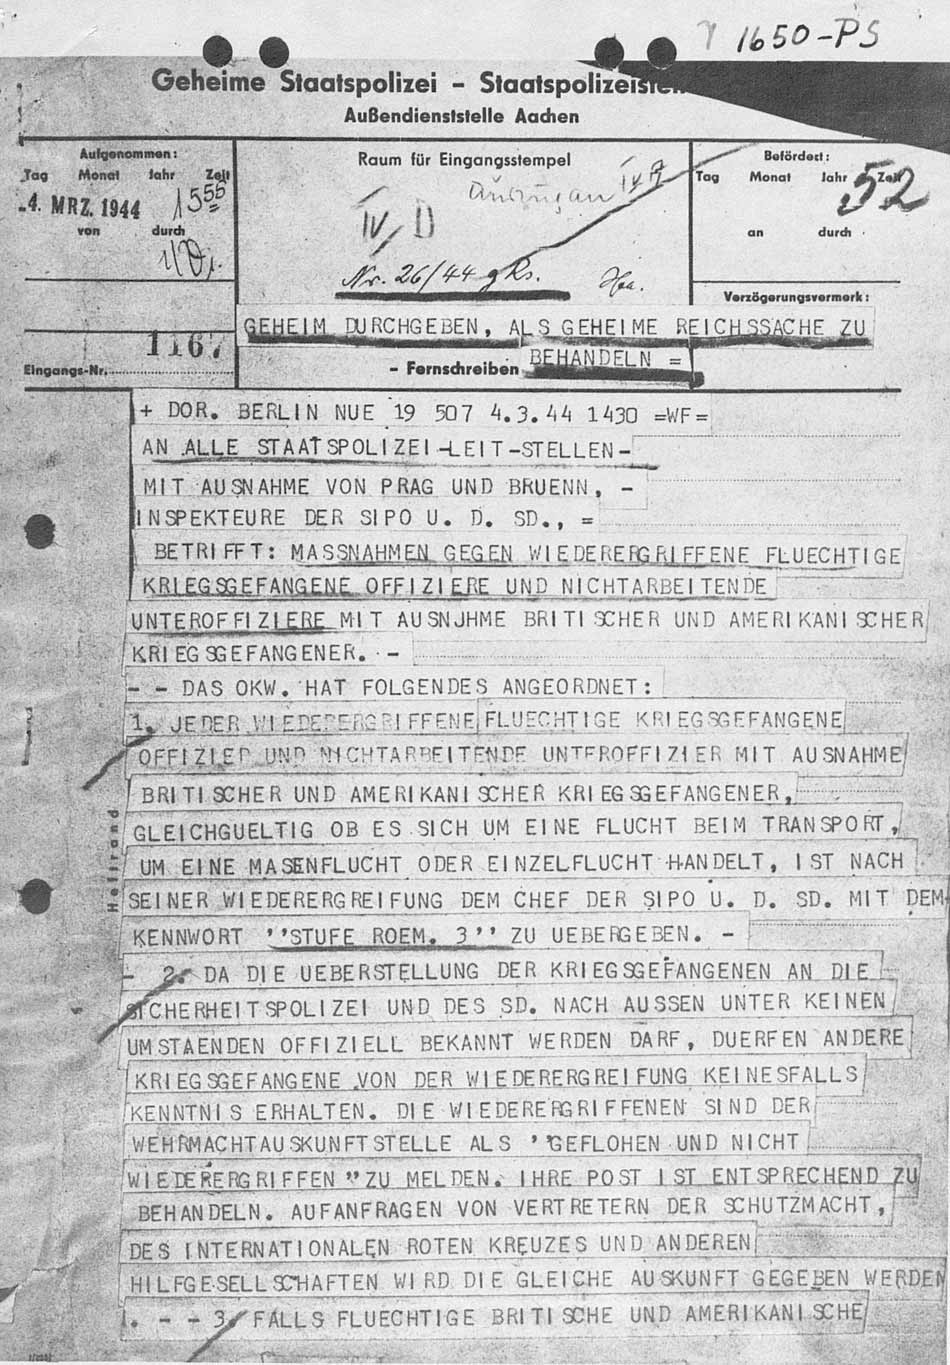 1650-PS
Geheime Staatspolizei – Staatspolizeistellen
Außendienststelle Aachen
Aufgenommen:
Tag Monat Jahr Zeit
-4. MRZ. 1944 1555
von durch
Raum für Eingangsstempel
IV D
IV A
Nr. 26/44 gRs.
Befördert:
Tag Monat Jahr Zeit
52
an durch
Verzögerungsvermerk:
GEHEIM DURCHGEBEN, ALS GEHEIME REICHSSACHE ZU
BEHANDELN =
1167
Eingangs-Nr.
- Fernschreiben
+ DOR. BERLIN NUE 19 507 4.3.44 1430 =WF=
AN ALLE STAATSPOLIZEI-LEIT-STELLEN-
MIT AUSNAHME VON PRAG UND BRUENN, -
INSPEKTEURE DER SIPO U. D. SD., =
BETRIFFT: MASSNAHMEN GEGEN WIEDERERGRIFFENE FLUECHTIGE
KRIEGSGEFANGENE OFFIZIERE UND NICHTARBEITENDE
UNTEROFFIZIERE MIT AUSNJHME BRITISCHER UND AMERIKANISCHER
KRIEGSGEFANGENER. -
- - DAS OKW. HAT FOLGENDES ANGEORDNET:
1. JEDER WIEDERERGRIFFENE FLUECHTIGE KRIEGSGEFANGENE
OFFIZIER UND NICHTARBEITENDE UNTEROFFIZIER MIT AUSNAHME
BRITISCHER UND AMERIKANISCHER KRIEGSGEFANGENER,
GLEICHGUELTIG OB ES SICH UM EINE FLUCHT BEIM TRANSPORT,
UM EINE MASENFLUCHT ODER EINZELFLUCHT HANDELT, IST NACH
Heftrand
SEINER WIEDERERGREIFUNG DEM CHEF DER SIPO U. D. SD. MIT DEM
KENNWORT ''STUFE ROEM. 3'' ZU UEBERGEBEN. -
- 2. DA DIE UEBERSTELLUNG DER KRIEGSGEFANGENEN AN DIE
SICHERHEITSPOLIZEI UND DES SD. NACH AUSSEN UNTER KEINEN
UMSTAENDEN OFFIZIELL BEKANNT WERDEN DARF, DUERFEN ANDERE
KRIEGSGEFANGENE VON DER WIEDERERGREIFUNG KEINESFALLS
KENNTNIS ERHALTEN. DIE WIEDERERGRIFFENEN SIND DER
WEHRMACHTAUSKUNFTSTELLE ALS ''GEFLOHEN UND NICHT
WIEDERERGRIFFEN '' ZU MELDEN. IHRE POST IST ENTSPRECHEND ZU
BEHANDELN. AUFANFRAGEN VON VERTRETERN DER SCHUTZMACHT,
DES INTERNATIONALEN ROTEN KREUZES UND ANDEREN
HILFGESELLSCHAFTEN WIRD DIE GLEICHE AUSKUNFT GEGEBEN WERDEN
. - - 3. FALLS FLUECHTIGE BRITISCHE UND AMERIKANISCHE